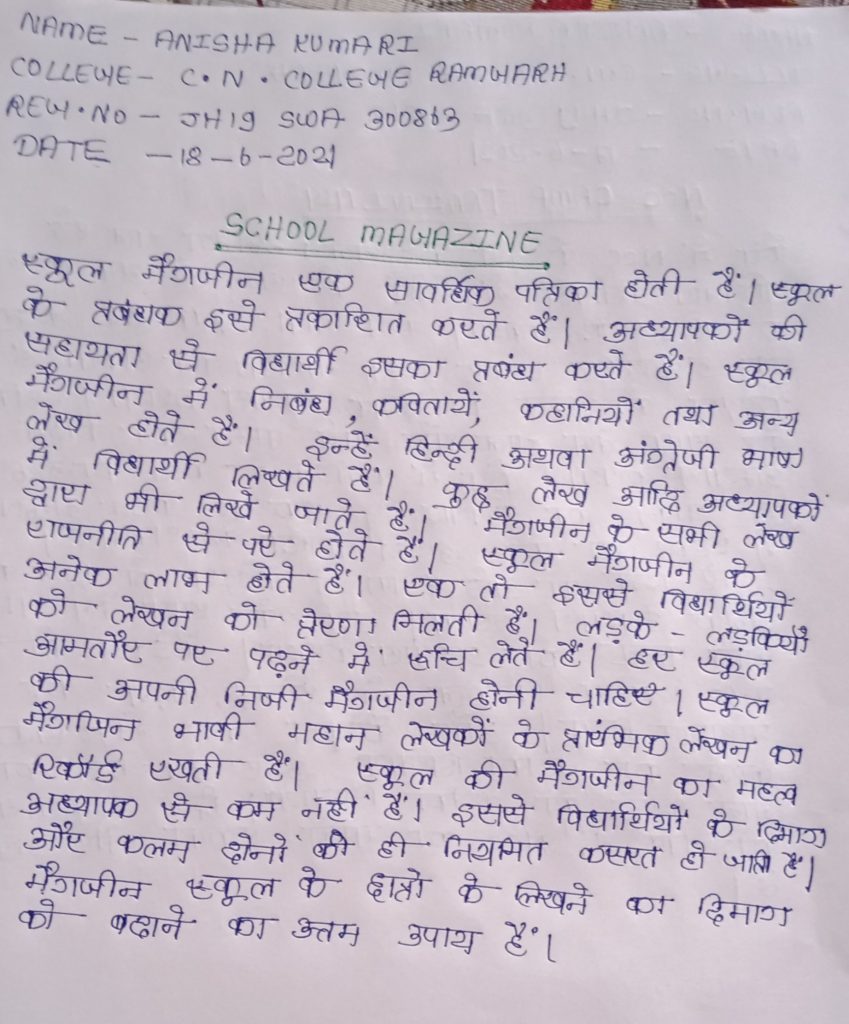 NAME - ANISHA KUMARI
COLLEGE - C.N. COLLEGE RAMGARH
REG.NO - JH19 SWA 300863
DATE - 18-6-2021
SCHOOL MAGAZINE
स्कूल मैगजीन एक सावधिक पत्रिका होती हैं। स्कूल
के प्रबंधक इसे प्रकाशित करते हैं। अध्यापकों की
सहायता से विद्यार्थी इसका प्रबंध करते हैं। स्कूल
मैगजीन में निबंध, कवितायें, कहानियों तथा अन्य
लेख होते हैं। इन्हें हिन्दी अथवा अंग्रेजी भाषा
में विद्यार्थी लिखते हैं। कुछ लेख आदि अध्यापकों
द्वारा भी लिखे जाते हैं। मैगजीन के सभी लेख
राजनीति से परे होते हैं। स्कूल मैगजीन के
अनेक लाभ होते हैं। एक तो इससे विद्यार्थियों
को लेखन को प्रेरणा मिलती हैं। लड़के - लड़कियाँ
आमतौर पर पढ़ने मे रूचि लेते हैं। हर स्कूल
की अपनी निजी मैगजीन होनी चाहिए। स्कूल
मैगजिन भावी महान लेखकों के प्रारंभिक लेखन का
रिकॉर्ड रखती हैं। स्कूल की मैगजीन का महत्व
अध्यापक से कम नही हैं। इससे विद्यार्थियों के दिमाग
और कलम दोनो की ही नियमित कसरत हो जाती हैं।
मैगजीन स्कूल के छात्रो के लिखने का दिमाग
को बढाने का उत्तम उपाय हैं।